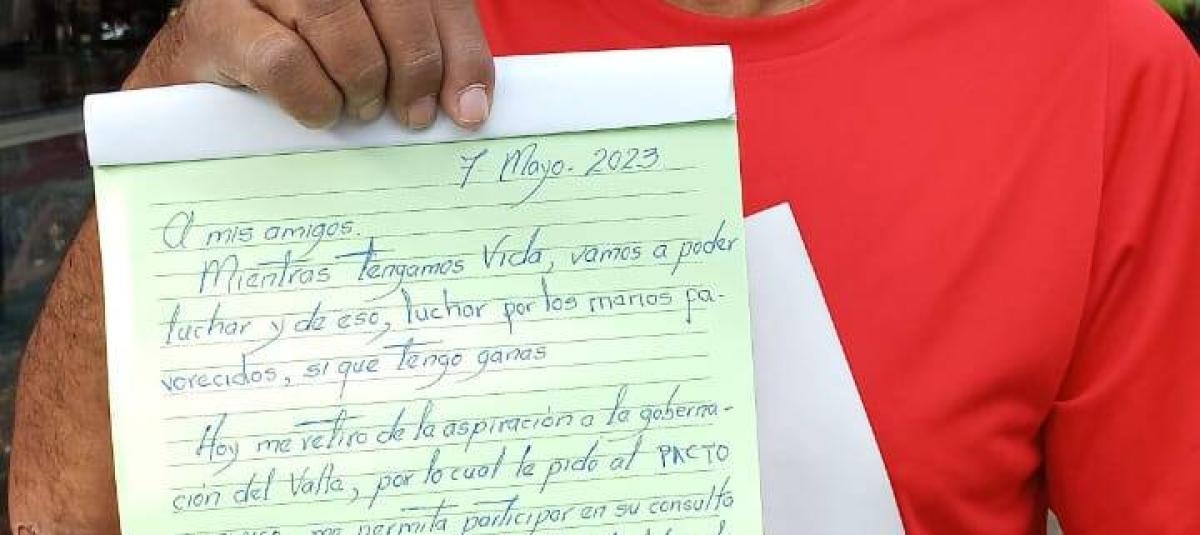 7 Mayo. 2023
A mis amigos.
Mientras tengamos Vida, vamos a poder
luchar y de eso, luchar por los menos fa-
vorecidos, si que tengo ganas
Hoy me retiro de la aspiración a la goberna-
ción del Valle, por lo cual le pido al PACTO
me permita participar en su consulta